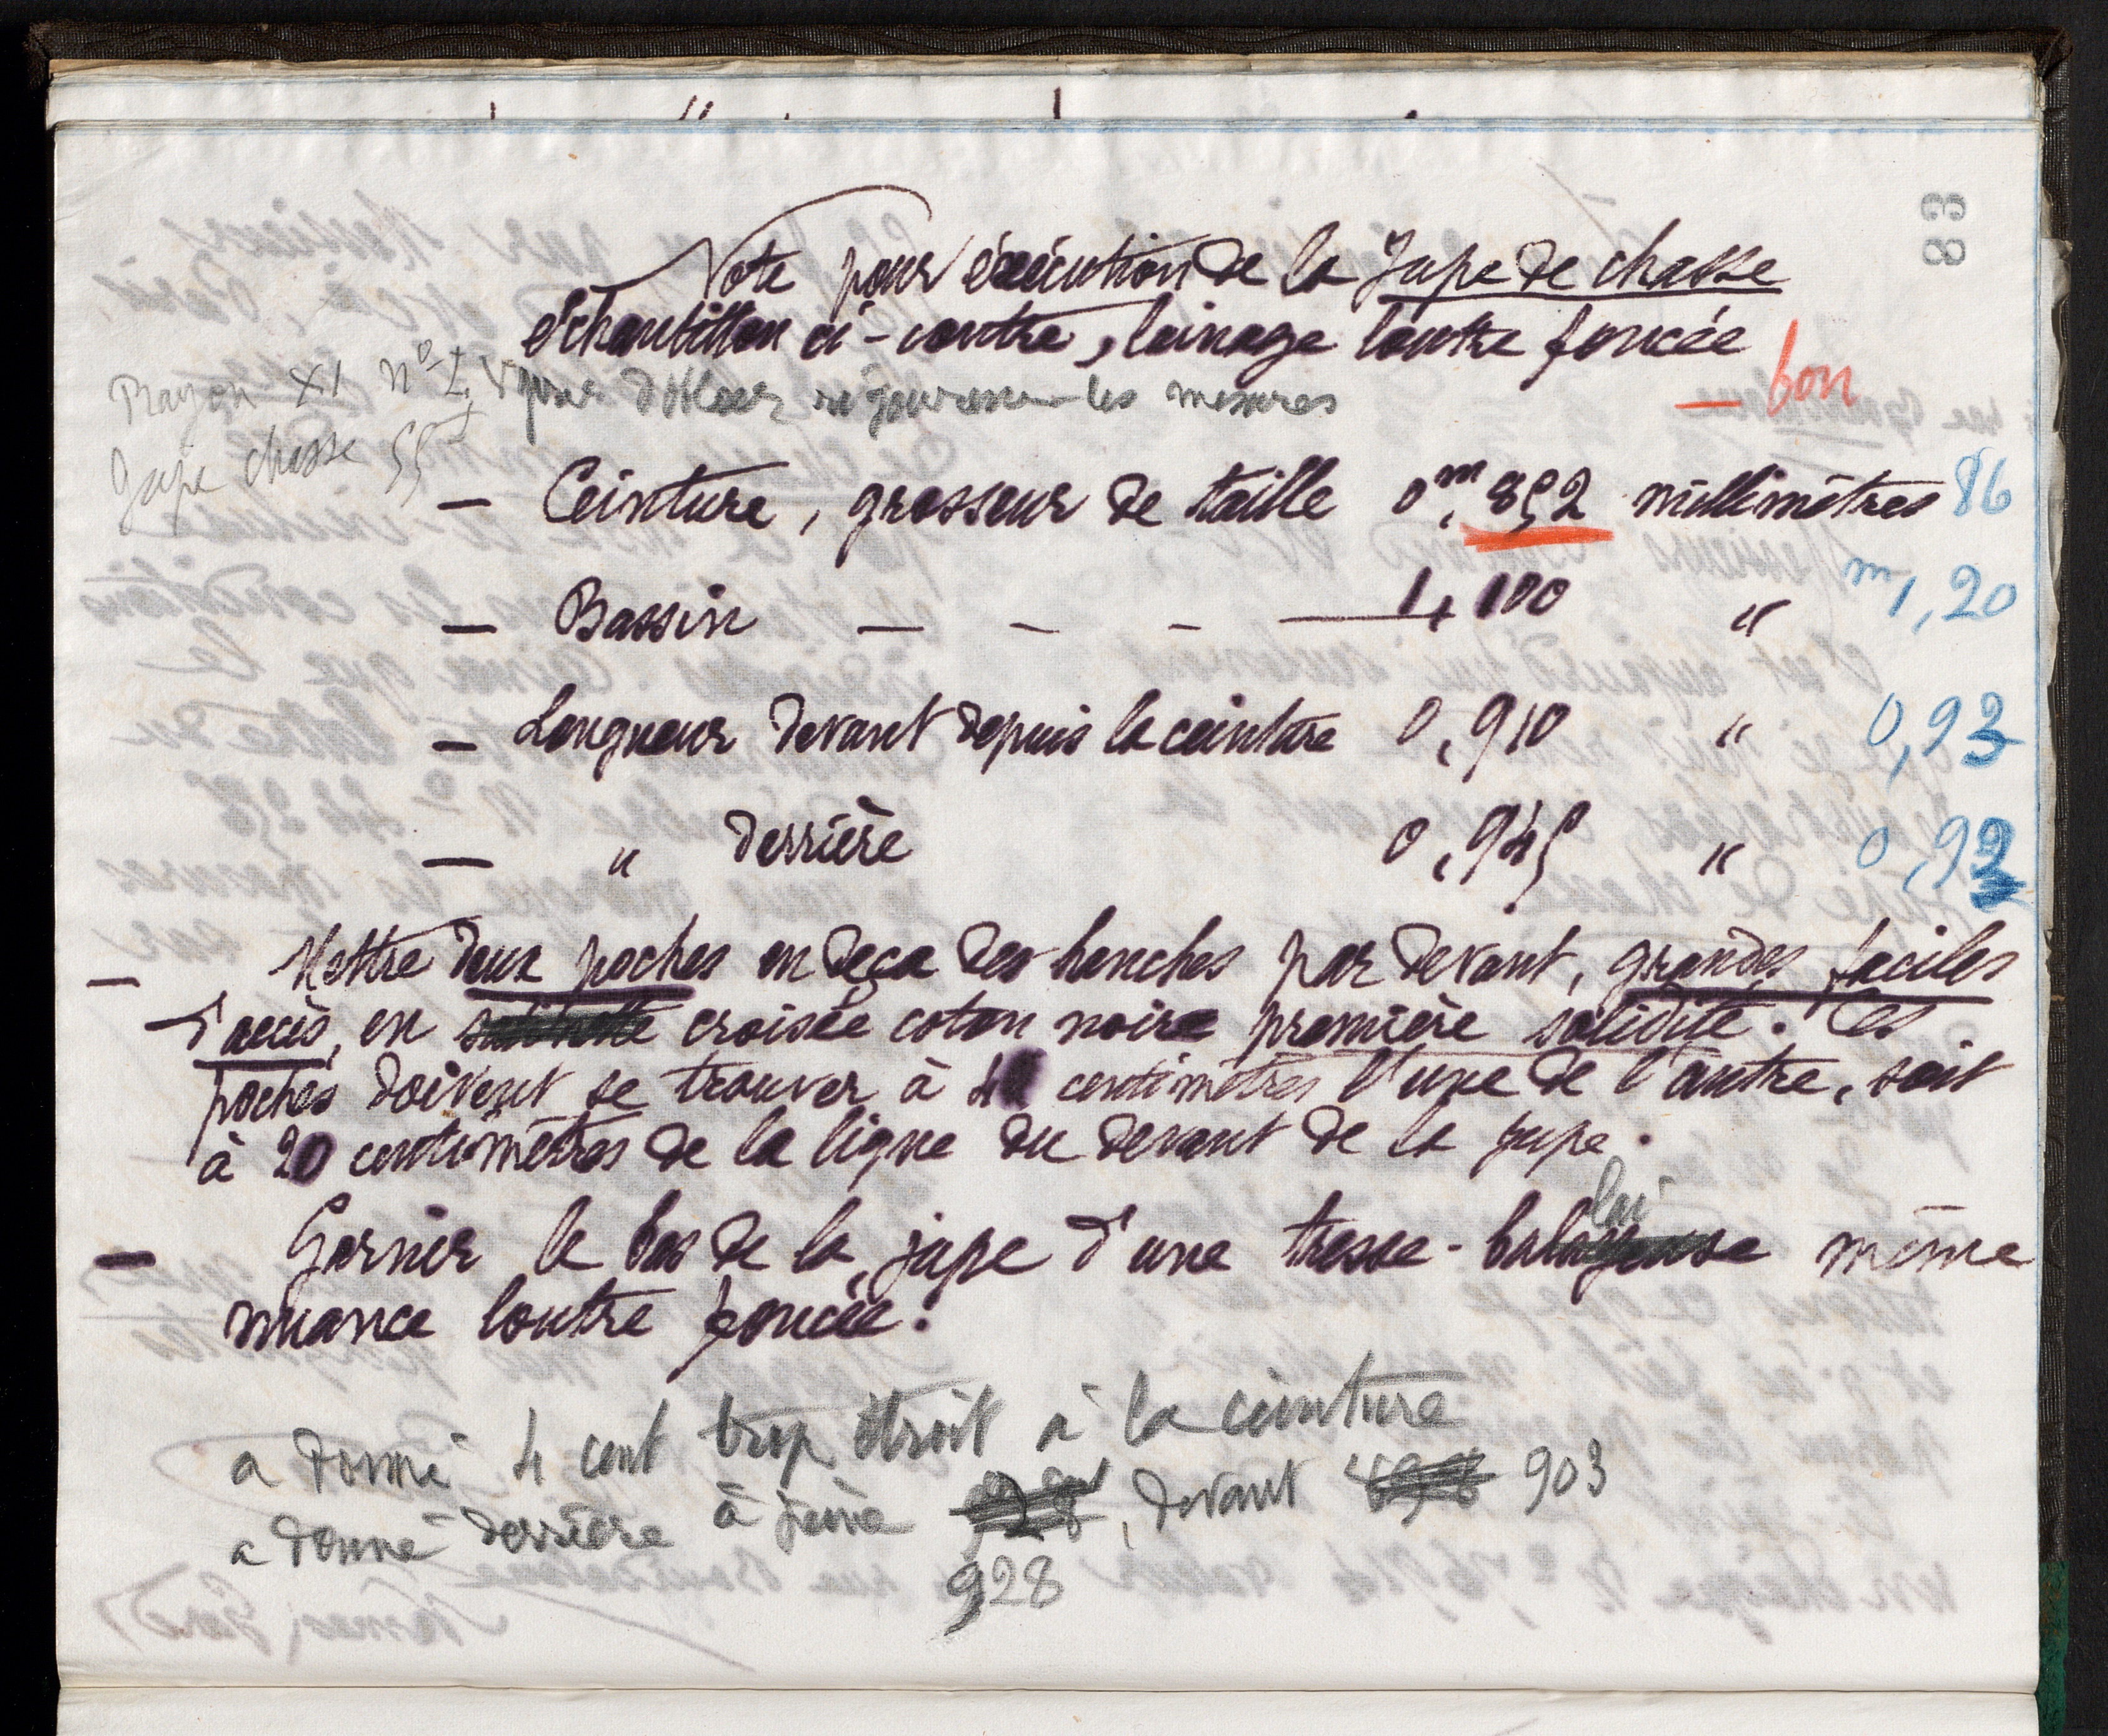 83
Note pour éxécution de la Jupe de chasse
échantillon ci-contre, lainage loutre foncée
— bon
Rayon XI nº 2, pour les mesures
Jupe chasse 55
— Ceinture, grosseur de taille 0m,852 millimètres 86
— Bassin — — — — 1,180 " m1,20
— Longueur devant depuis la ceinture 0,910 " 0,93
— " derrière 0,945 " 0,92
— Mettre deux poches en deça des hanches par devant, grandes faciles
d'accès, en croisée coton noire première solidité. Ces
poches doivent se trouver à 40 centimètres l'une de l'autre, soit
à 20 centimètres de la ligne du devant de la jupe.
lai
— Garnir le bas de la jupe d'une tresse-balayeuse même
nuance loutre foncée.
a donné 4 cent trop étroit à la ceinture
a donné derrière à peine 928, devant 898 903
928